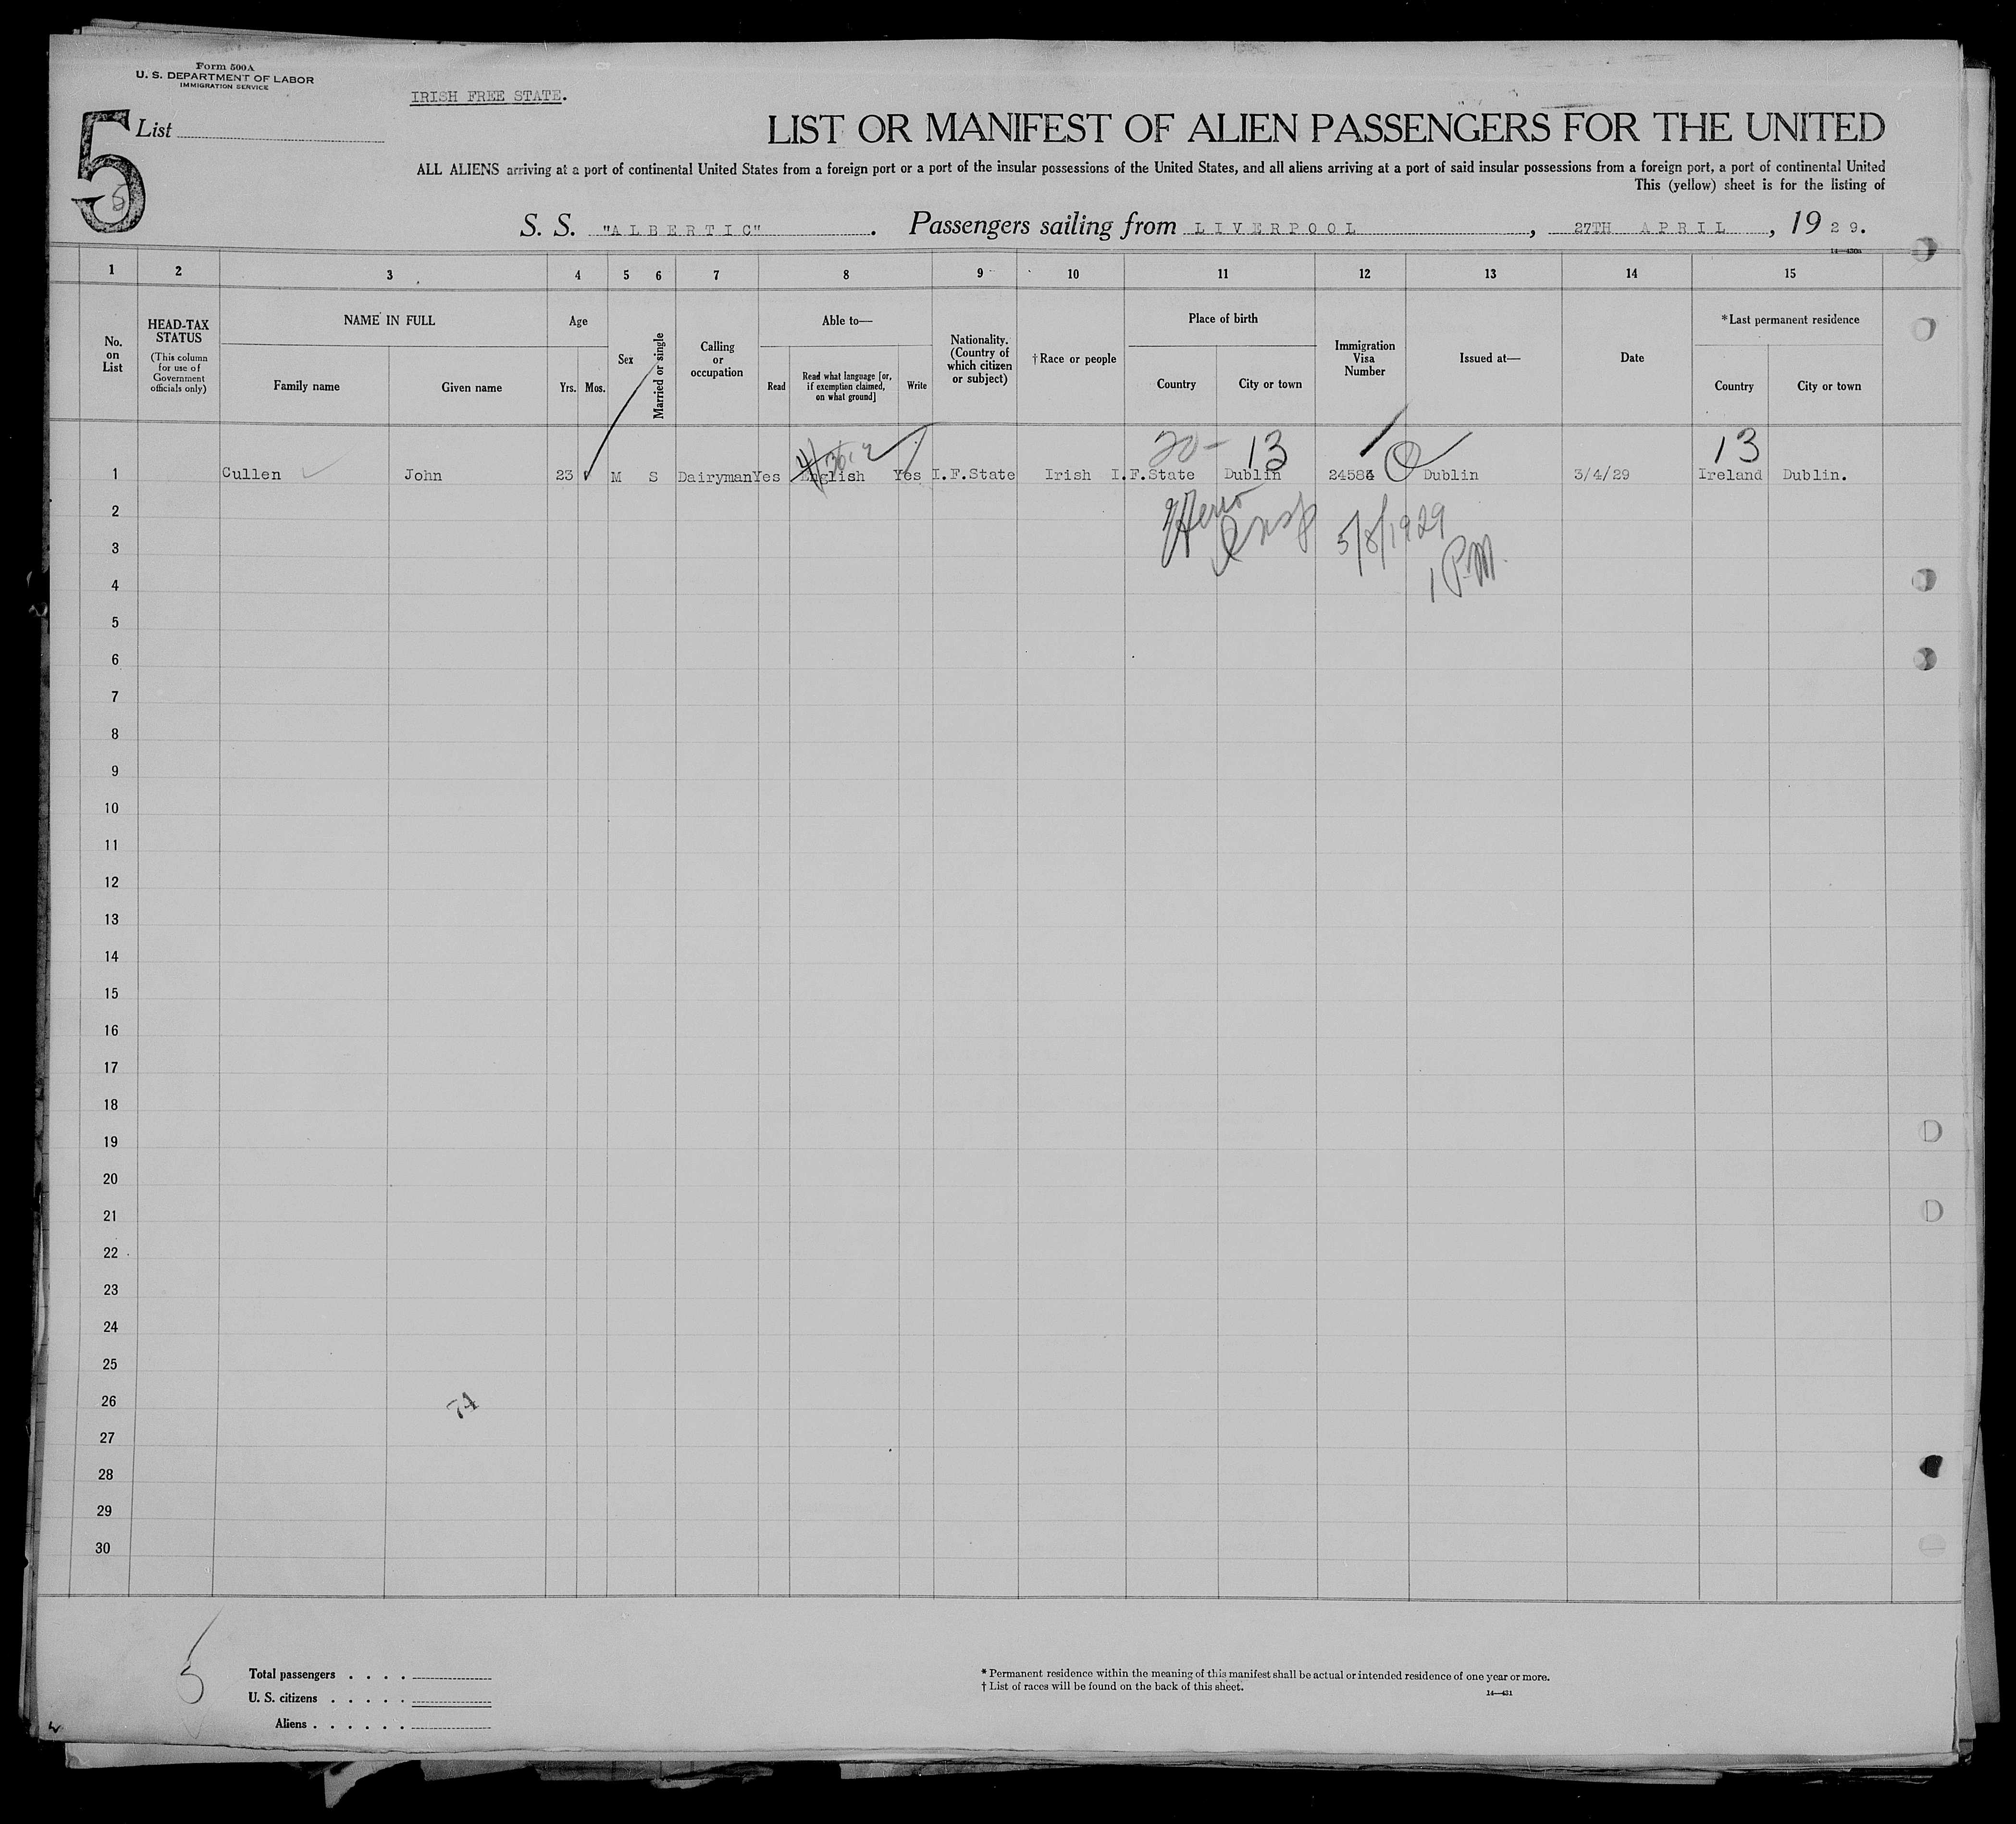 Form 500A
U. S. DEPARTMENT OF LABOR
IMMIGRATION SERVICE
IRISH FREE STATE.
5
List
LIST OR MANIFEST OF ALIEN PASSENGERS FOR THE UNITED
ALL ALIENS arriving at a port of continental United States from a foreign port or a port of the insular possessions of the United States, and all aliens arriving at a port of said insular possessions from a foreign port, a port of continental United
This (yellow) sheet is for the listing of
S. S. "ALBERTIC". Passengers sailing from LIVERPOOL, 27TH APRIL, 1929.
14—430a
1 2 3 4 5 6 7 8 9 10 11 12 13 14 15
No. on List
HEAD-TAX STATUS
(This column for use of Government officials only)
NAME IN FULL
Family name
Given name
Age
Yrs. Mos.
Sex
Married or single
Calling or occupation
Able to—
Read
Read what language [or, if exemption claimed, on what ground]
Write
Nationality. (Country of which citizen or subject)
†Race or people
Place of birth
Country
City or town
Immigration Visa Number
Issued at—
Date
*Last permanent residence
Country
City or town
20- 13 13
1 Cullen John 23 M S Dairyman Yes English Yes I.F.State Irish I.F.State Dublin Dublin 3/4/29 Ireland Dublin.
2
Insp 5/8/1929
3
1 PM
4
5
6
7
8
9
10
11
12
13
14
15
16
17
18
19
20
21
22
23
24
25
26
74
27
28
29
30
5
Total passengers . . . .
U. S. citizens . . . . .
Aliens . . . . . .
* Permanent residence within the meaning of this manifest shall be actual or intended residence of one year or more.
† List of races will be found on the back of this sheet.
14—431